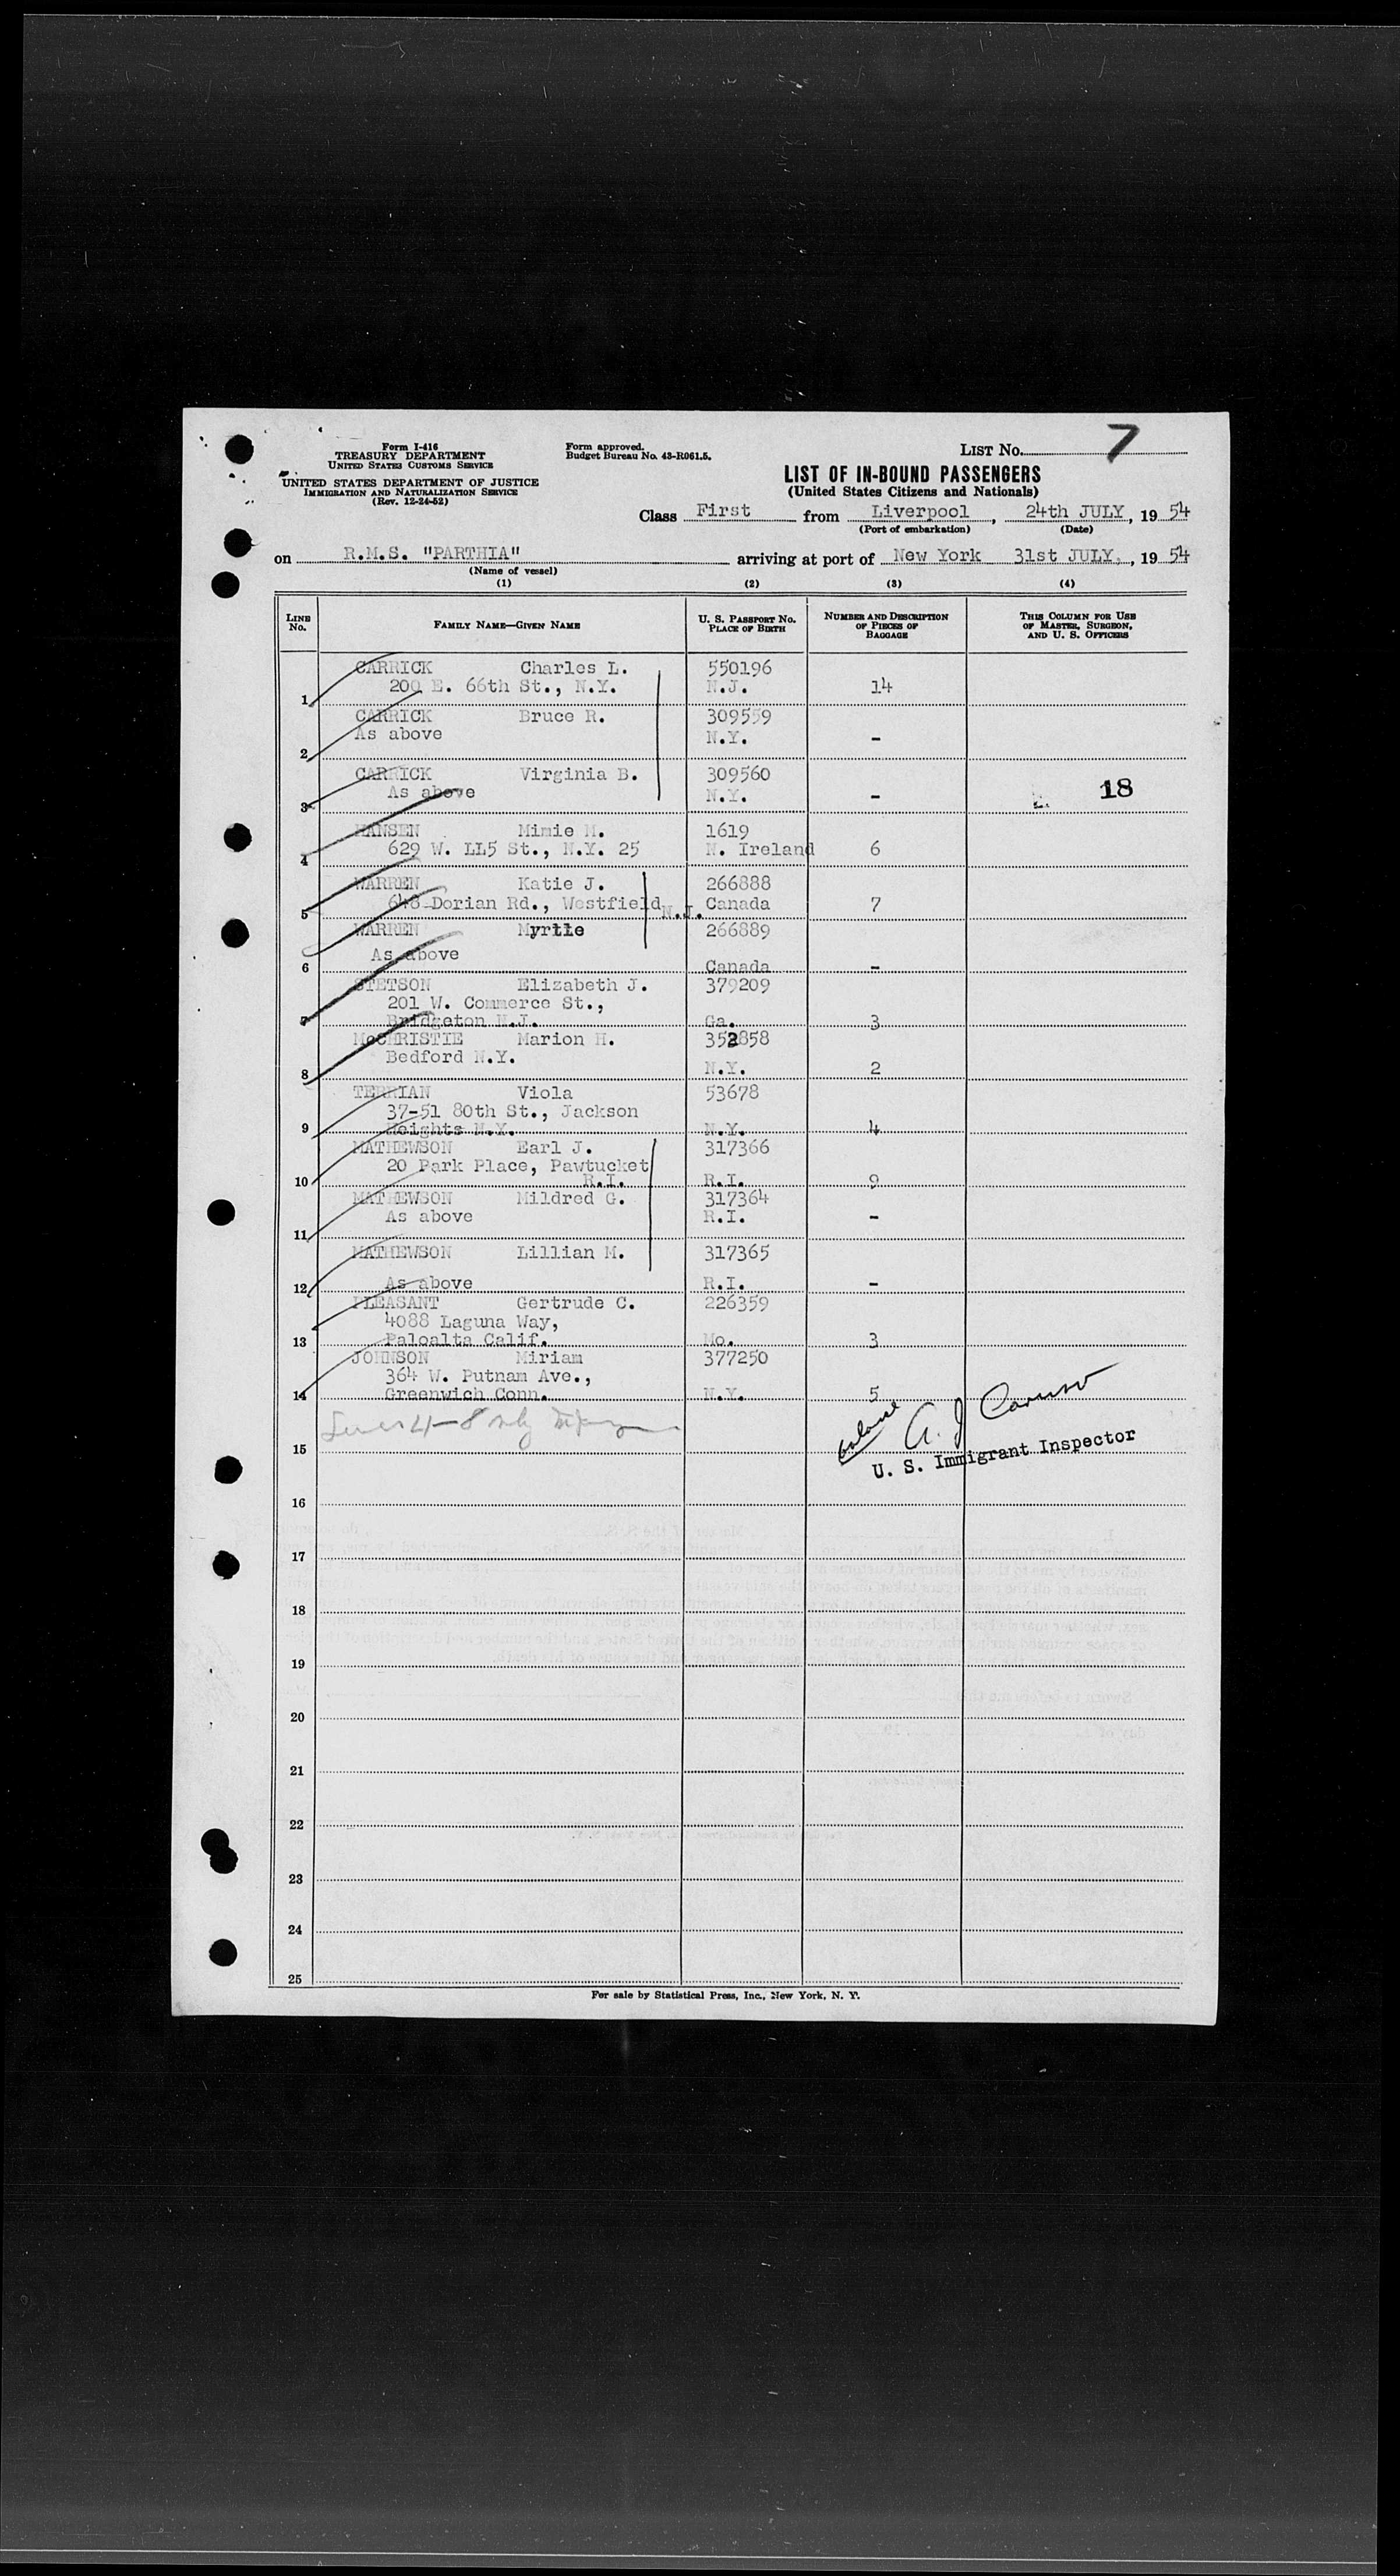 Form I-416
TREASURY DEPARTMENT
UNITED STATES CUSTOMS SERVICE
UNITED STATES DEPARTMENT OF JUSTICE
IMMIGRATION AND NATURALIZATION SERVICE
(Rev. 12-24-52)
Form approved.
Budget Bureau No. 43-R061.5.
LIST No. 7
LIST OF IN-BOUND PASSENGERS
(United States Citizens and Nationals)
Class First from Liverpool, 24th JULY, 19 54
(Port of embarkation) (Date)
on R.M.S. "PARTHIA" arriving at port of New York 31st JULY, 19 54
(Name of vessel)
(1) (2) (3) (4)
LINE No. FAMILY NAME—GIVEN NAME U. S. PASSPORT No. PLACE OF BIRTH NUMBER AND DESCRIPTION OF PIECES OF BAGGAGE THIS COLUMN FOR USE OF MASTER, SURGEON, AND U. S. OFFICERS
CARRICK Charles L. 550196
200 E. 66th St., N.Y. N.J. 14
1
CARRICK Bruce R. 309559
As above N.Y. -
2
CARRICK Virginia B. 309560
As above N.Y. - 18
3
HANSEN Mimie M. 1619
629 W. LL5 St., N.Y. 25 N. Ireland 6
4
WARREN Katie J. 266888
648 Dorian Rd., Westfield N.J. Canada 7
5
WARREN Myrtle 266889
As above
6 Canada -
STETSON Elizabeth J. 379209
201 W. Commerce St.,
7 Bridgeton N.J. Ga. 3
McCHRISTIE Marion H. 352858
Bedford N.Y.
8 N.Y. 2
TERRIAN Viola 53678
37-51 80th St., Jackson
9 Heights N.Y. N.Y. 4
MATHEWSON Earl J. 317366
20 Park Place, Pawtucket
10 R.I. R.I. 9
MATHEWSON Mildred G. 317364
As above R.I. -
11
MATHEWSON Lillian M. 317365
12 As above R.I. -
PLEASANT Gertrude C. 226359
4088 Laguna Way,
13 Paloalta Calif. Mo. 3
JOHNSON Miriam 377250
364 W. Putnam Ave.,
14 Greenwich Conn. N.Y. 5
4-8 only
balance A. J Caruso
15
U. S. Immigrant Inspector
16
17
18
19
20
21
22
23
24
25
For sale by Statistical Press, Inc., New York, N. Y.